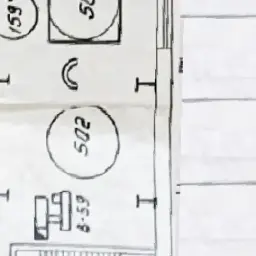 159
50
502
8-59